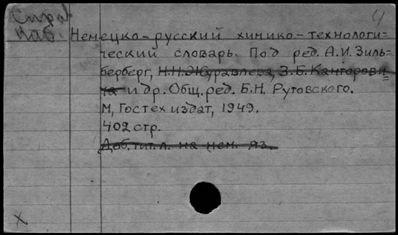 Справ. 4
Каб. Немецко-русский химико-технологи-
ческий словарь. Под ред. А.И. Зиль-
берберг, Н.Н. Журавлева, З.Б. Канторови-
ча и др. Общ. ред. Б.Н. Рутовского.
М, Гостехиздат, 1949.
402 стр.
Доб. тит. л. на нем. яз.
X